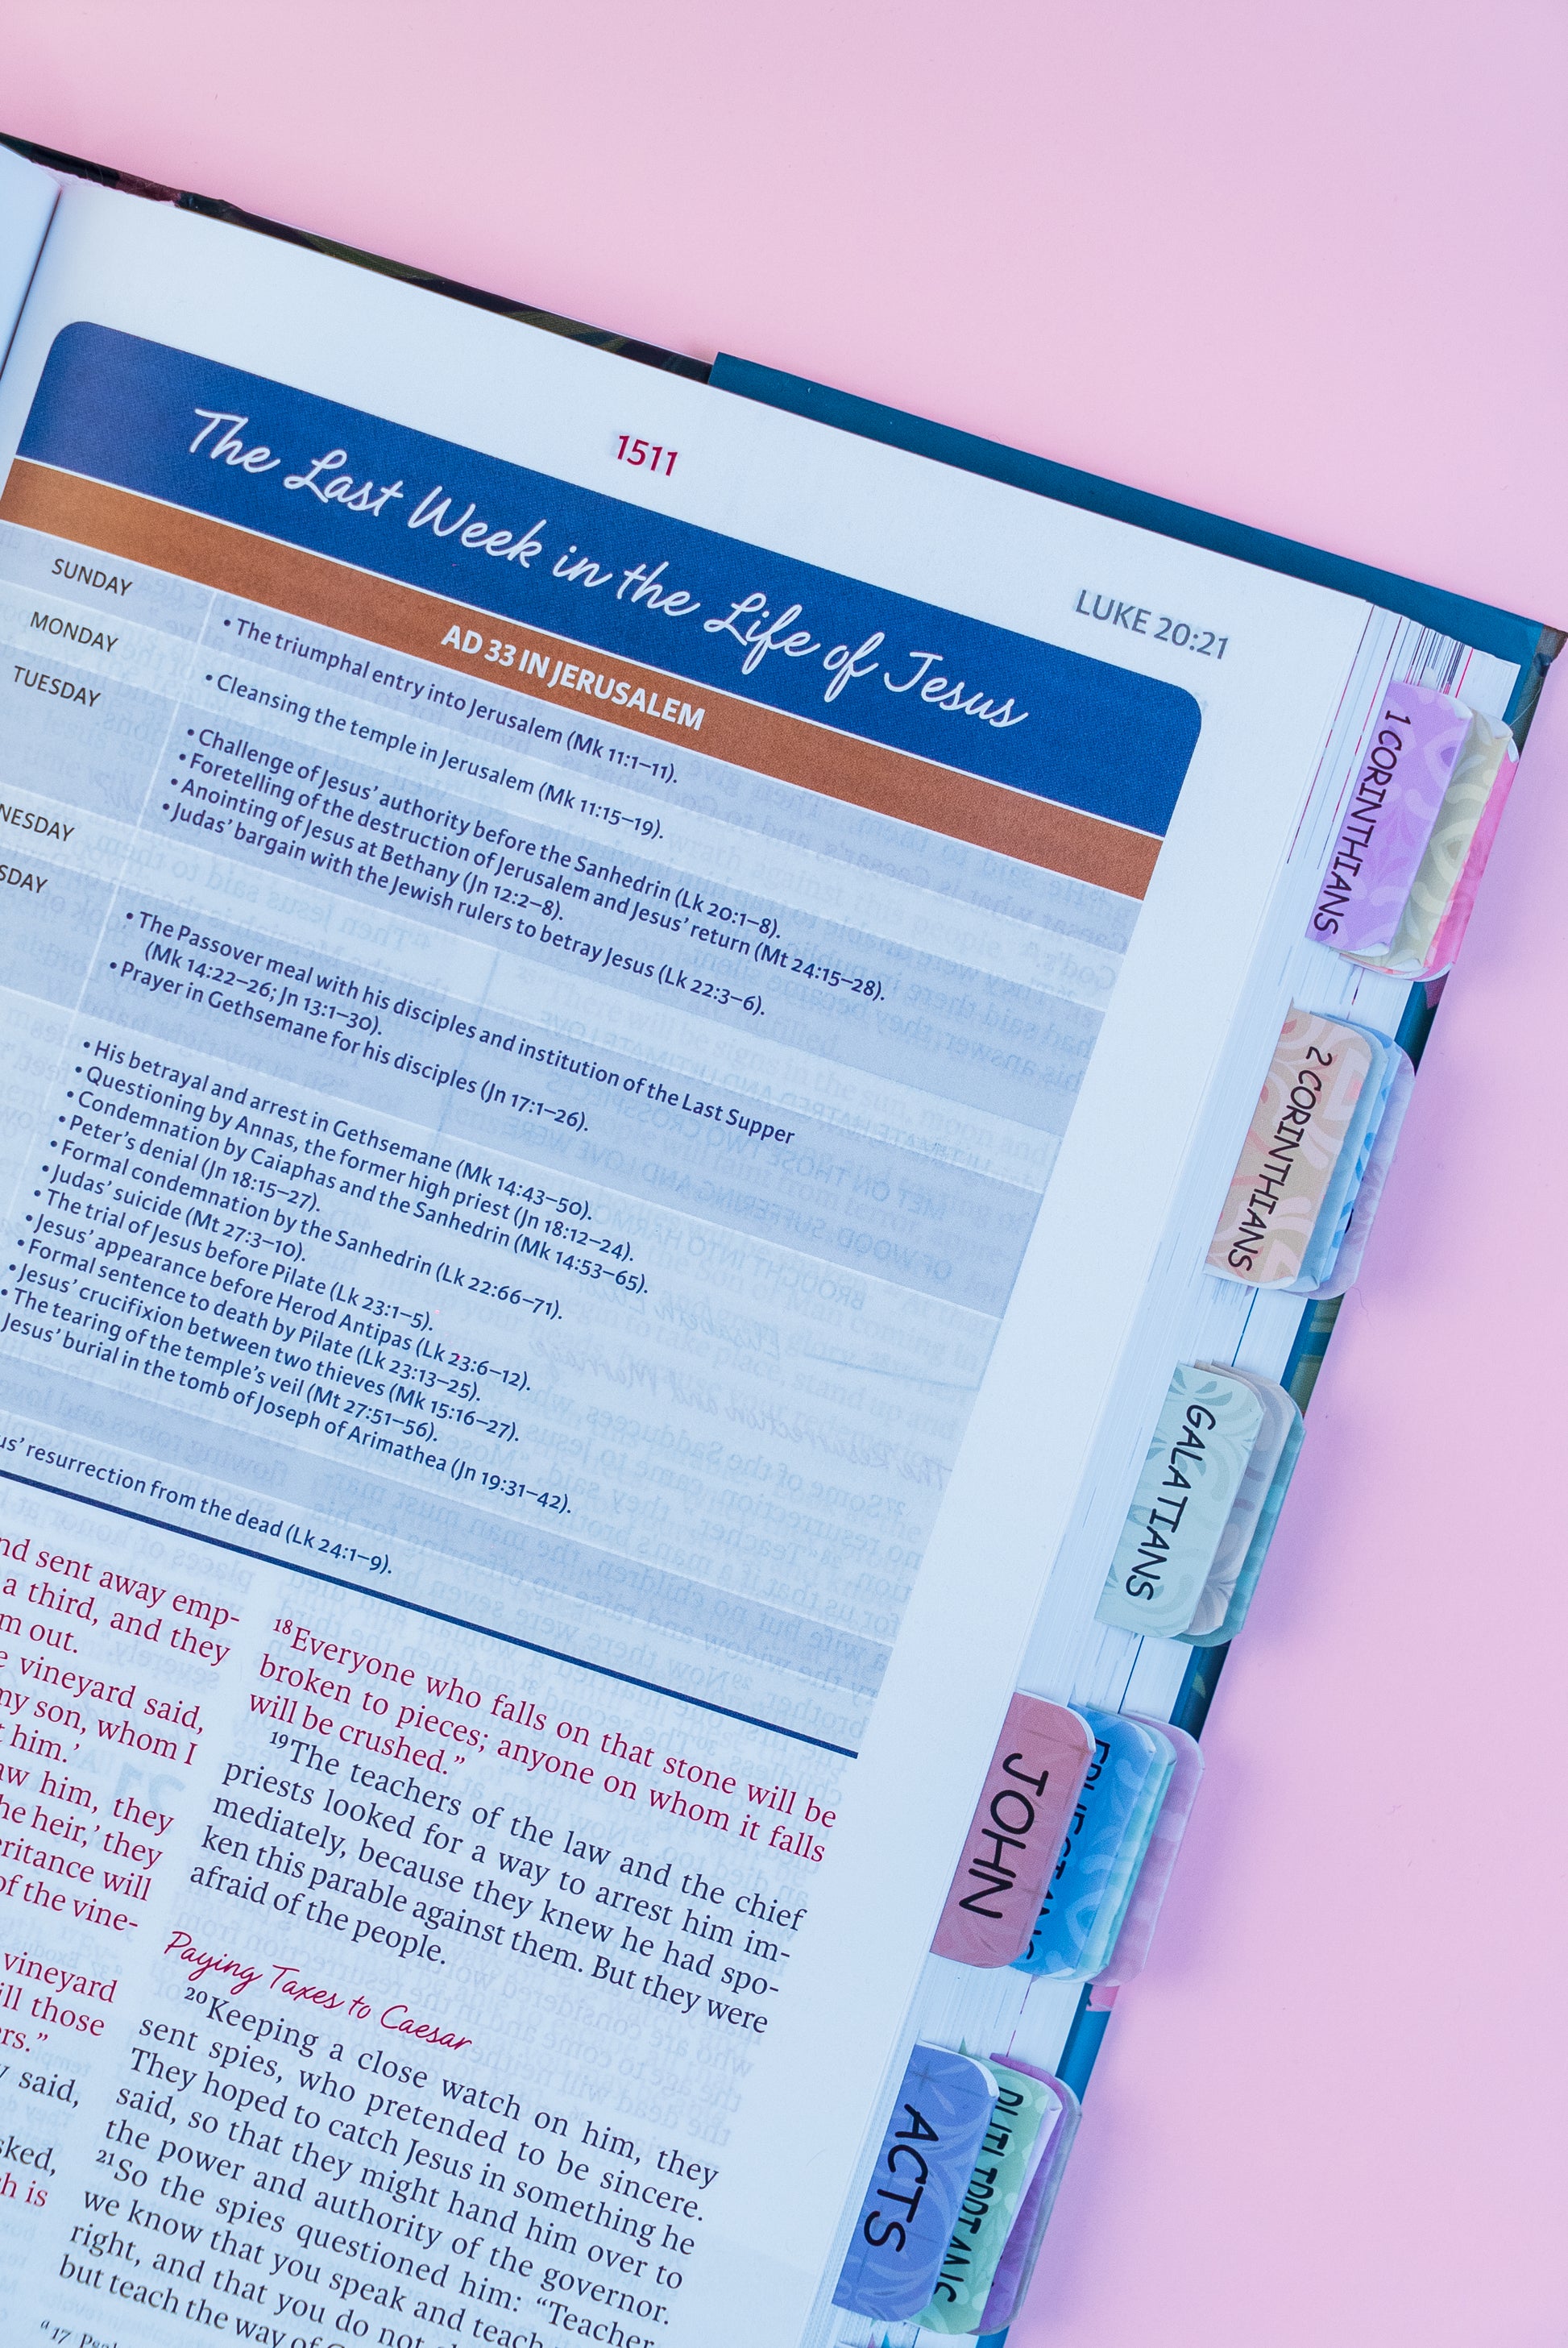 1511
LUKE 20:21
The Last Week in the Life of Jesus
AD 33 IN JERUSALEM
SUNDAY
• The triumphal entry into Jerusalem (Mk 11:1–11).
MONDAY
• Cleansing the temple in Jerusalem (Mk 11:15–19).
TUESDAY
• Challenge of Jesus’ authority before the Sanhedrin (Lk 20:1–8).
• Foretelling of the destruction of Jerusalem and Jesus’ return (Mt 24:15–28).
• Anointing of Jesus at Bethany (Jn 12:2–8).
• Judas’ bargain with the Jewish rulers to betray Jesus (Lk 22:3–6).
NESDAY
SDAY
• The Passover meal with his disciples and institution of the Last Supper
(Mk 14:22–26; Jn 13:1–30).
• Prayer in Gethsemane for his disciples (Jn 17:1–26).
• His betrayal and arrest in Gethsemane (Mk 14:43–50).
• Questioning by Annas, the former high priest (Jn 18:12–24).
• Condemnation by Caiaphas and the Sanhedrin (Mk 14:53–65).
• Peter’s denial (Jn 18:15–27).
• Formal condemnation by the Sanhedrin (Lk 22:66–71).
• Judas’ suicide (Mt 27:3–10).
• The trial of Jesus before Pilate (Lk 23:1–5).
• Jesus’ appearance before Herod Antipas (Lk 23:6–12).
• Formal sentence to death by Pilate (Lk 23:13–25).
• Jesus’ crucifixion between two thieves (Mk 15:16–27).
• The tearing of the temple’s veil (Mt 27:51–56).
Jesus’ burial in the tomb of Joseph of Arimathea (Jn 19:31–42).
us’ resurrection from the dead (Lk 24:1–9).
nd sent away emp-
a third, and they
m out.
e vineyard said,
my son, whom I
t him.’
aw him, they
he heir,’ they
eritance will
of the vine-
vineyard
ill those
ers.”
y said,
sked,
h is
18Everyone who falls on that stone will be
broken to pieces; anyone on whom it falls
will be crushed.”
19The teachers of the law and the chief
priests looked for a way to arrest him im-
mediately, because they knew he had spo-
ken this parable against them. But they were
afraid of the people.
Paying Taxes to Caesar
20Keeping a close watch on him, they
sent spies, who pretended to be sincere.
They hoped to catch Jesus in something he
said, so that they might hand him over to
the power and authority of the governor.
21So the spies questioned him: “Teacher,
we know that you speak and teach
right, and that you do not
but teach the way of
a 17
1 CORINTHIANS
2 CORINTHIANS
GALATIANS
JOHN
EPHESIANS
ACTS